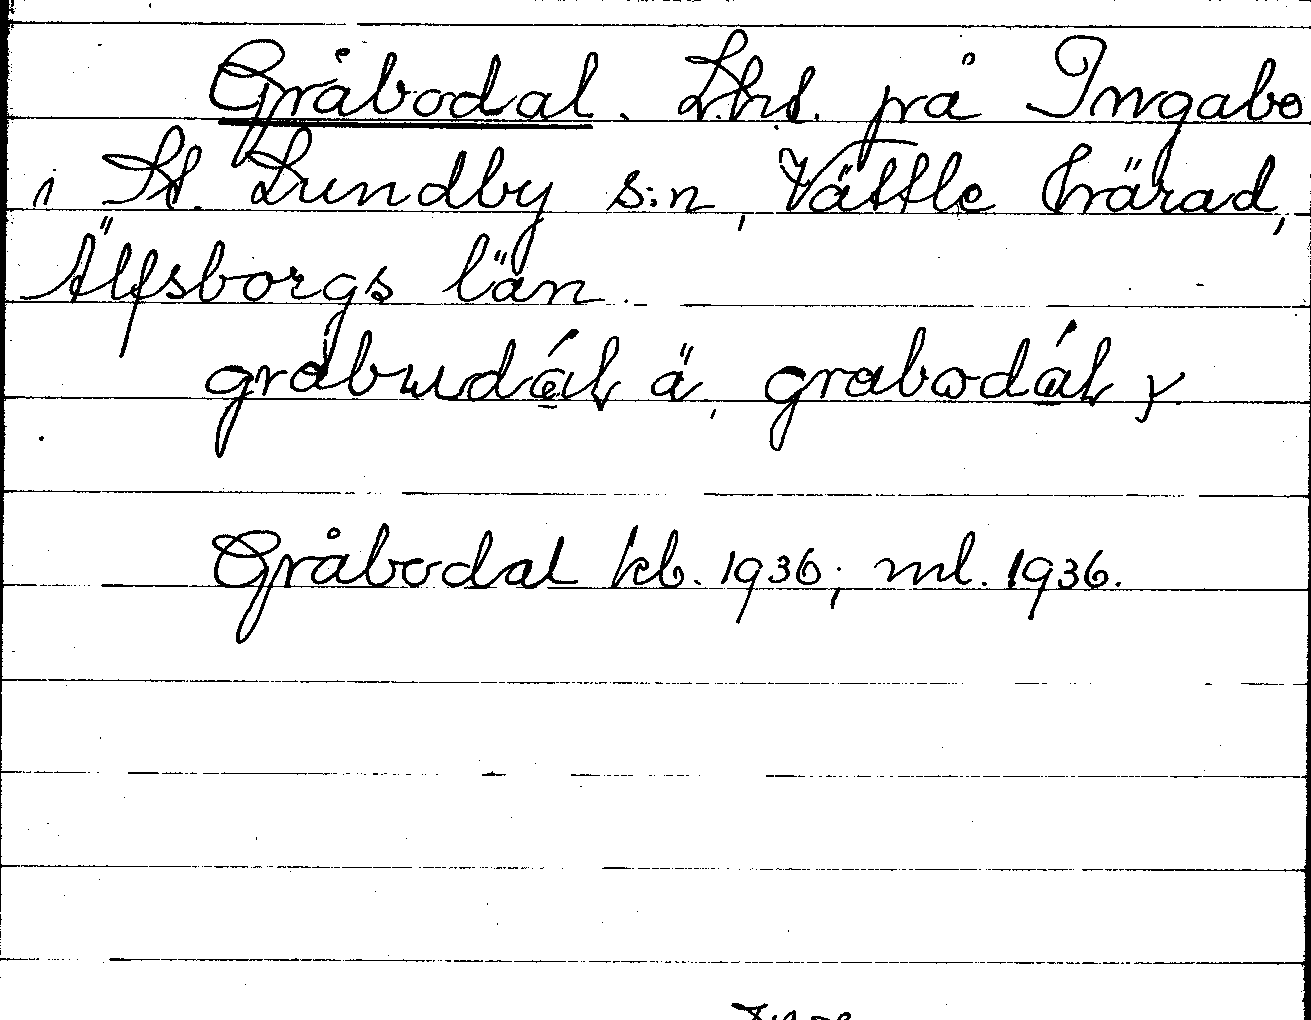 Gråbodal. Lht. på Ingabo
i St. Lundby s:n, Vättle härad,
Älfsborgs län.
ä, y.
Gråbodal kb. 1936; ml. 1936.